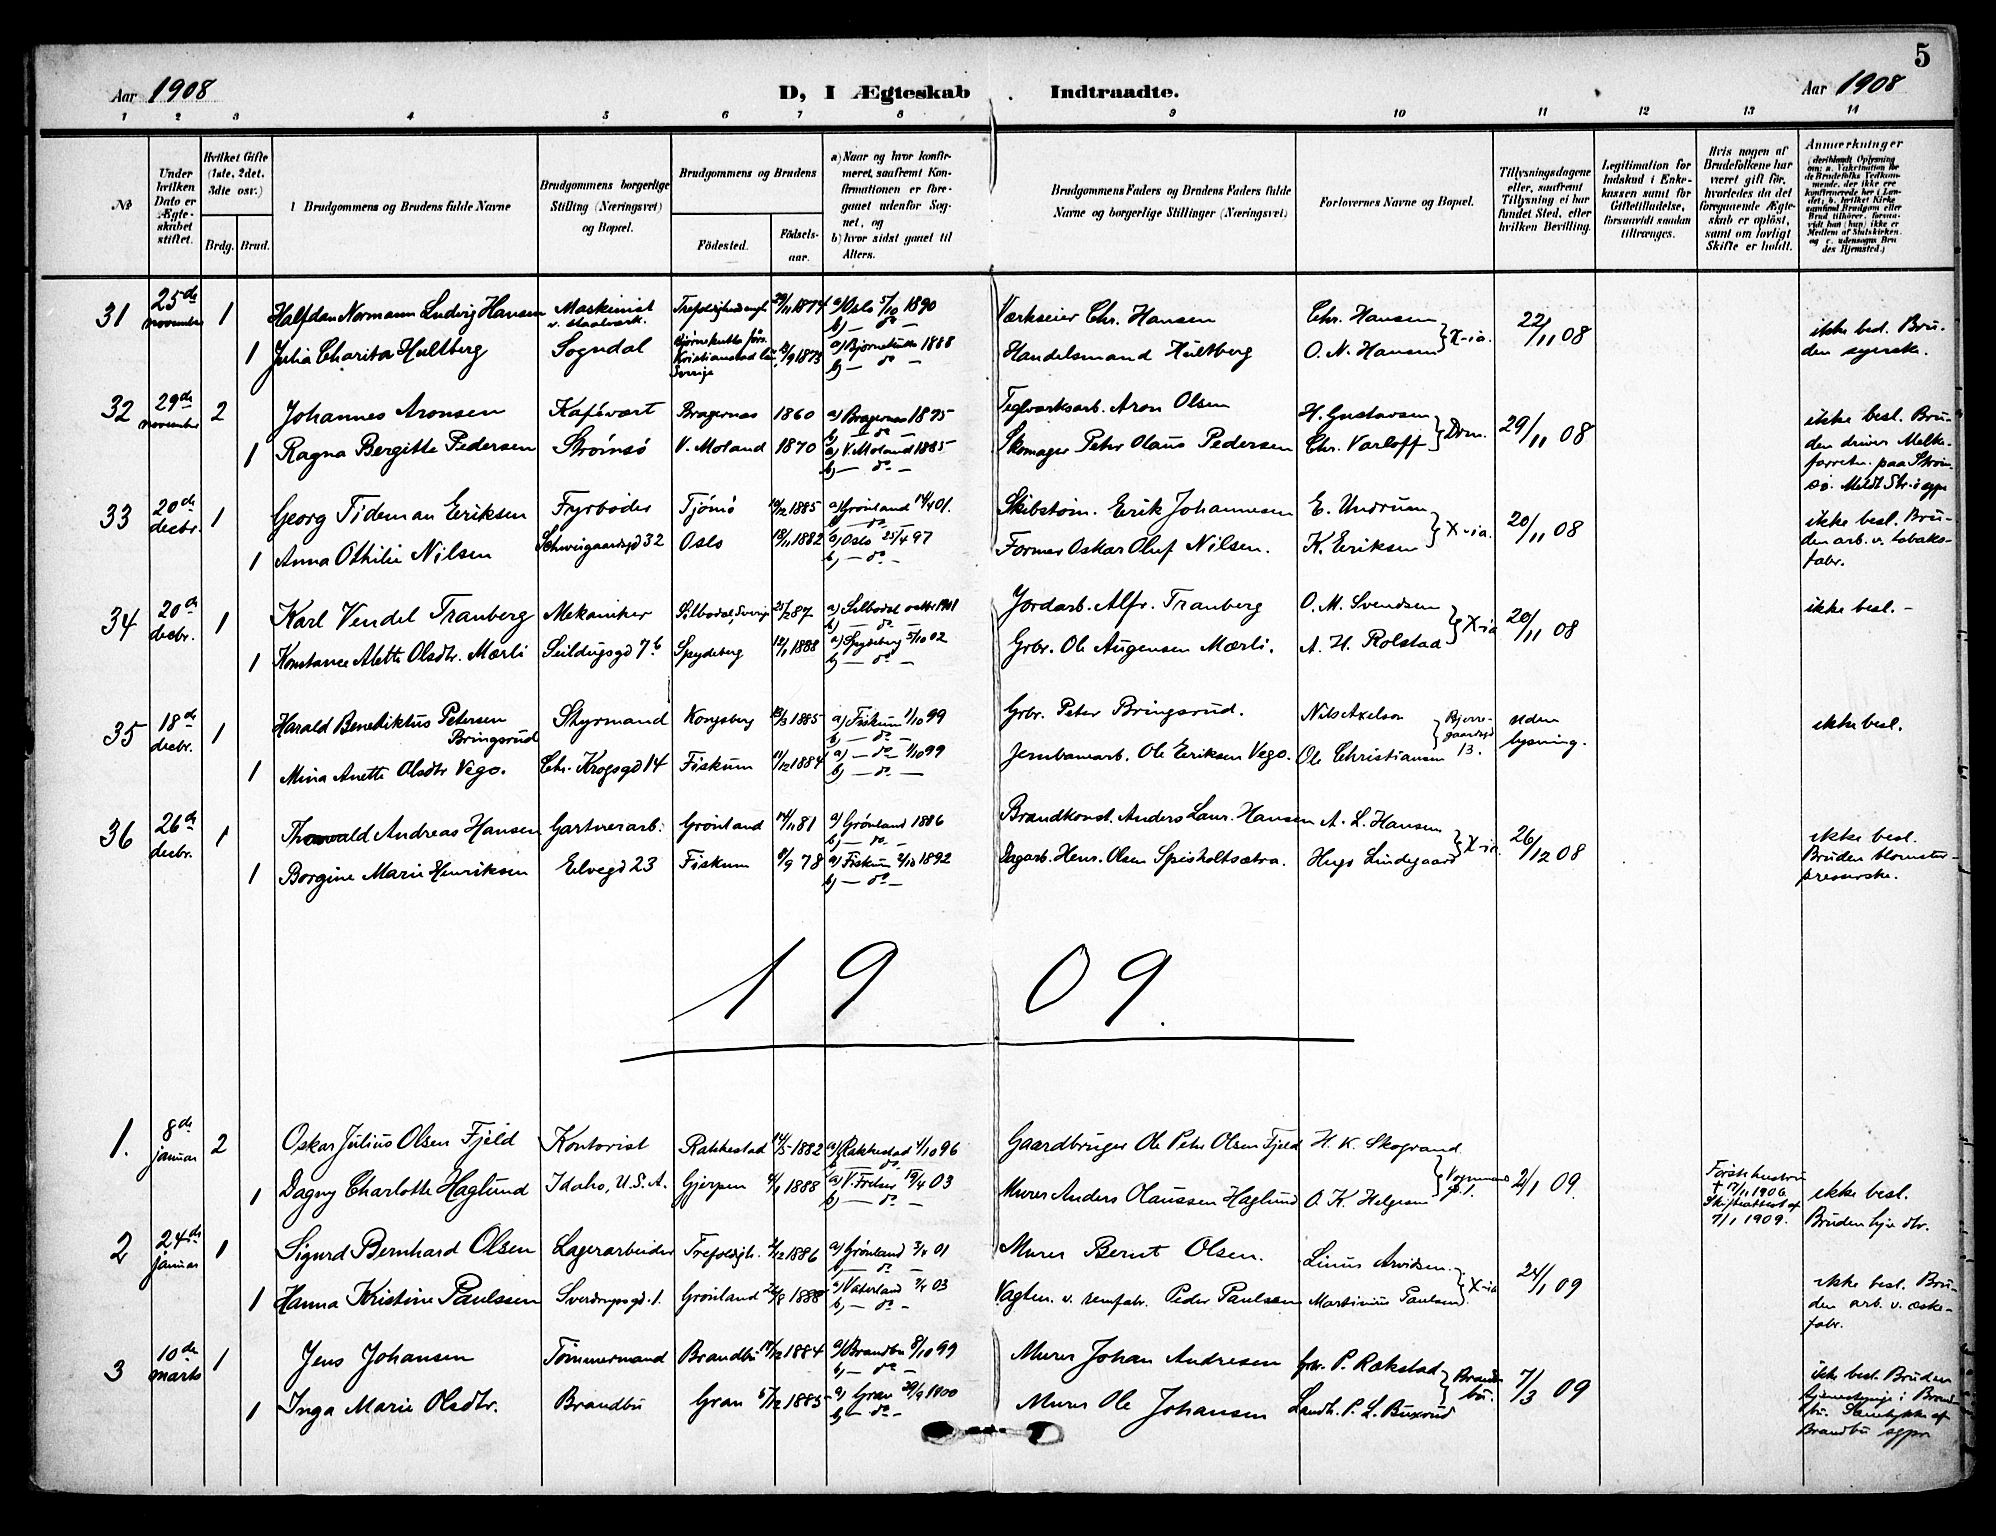 5
Aar 1908 D, I Ægteskab Indtraadte. Aar 1908
1 2 3 4 5 6 7 8 9 10 11 12 13 14
No
Under hvilken Dato er Ægteskabet stiftet.
Hvilket Gifte (1ste, 2det, 3die osv.)
Brdg. Brud.
Brudgommens og Brudens fulde Navne
Brudgommens borgerlige Stilling (Næringsvei) og Bopæl.
Brudgommens og Brudens
Fødested. Fødselsaar.
a) Naar og hvor konfirmeret, saafremt Konfirmationen er foregaaet udenfor Sognet, og
b) hvor sidst gaaet til Alters.
Brudgommens Faders og Brudens Faders fulde Navne og borgerlige Stillinger (Næringsvei)
Forlovernes Navne og Bopæl.
Tillysningsdagene eller, saafremt Tillysning ei har fundet Sted, efter hvilken Bevilling.
Legitimation for Indskud i Enkekassen samt for Giftetilladelse, forsaavidt saadan tiltrænges.
Hvis nogen af Brudefolkene har været gift før, hvorledes da det foregaaende Ægteskab er opløst, samt om lovligt Skifte er holdt.
Anmærkninger
31 25de november 1 Halfdan Normann Ludvig Hansen Maskinist v. staalverk. 1874 a) Oslo 5/10 1890 b) — do — Værkseier Chr. Hansen Chr. Hansen X-ia. 22/11 08 ikke besl. Bruden syerske.
1 Julia Charita Hultberg Sogndal Kristianstad Sverige 1873 1888 b) — do — Handelsmand Hultberg O. N. Hansen
32 29de november 2 Johannes Aronsen Kafévært Bragernæs 1860 a) Bragernæs 1875 b) — do — Teglværksarb. Aron Olsen H. Gustavsen Drm. 29/11 08 ikke besl. Bruden driver Melkeforretn. paa Strømsø.
1 Ragna Bergitte Pedersen Strømsø V. Moland 1870 a) V. Moland 1885 b) — do — Skomager Peter Olaus Pedersen Chr. Varloff
33 20de decbr. 1 Georg Tideman Eriksen Fyrbøder Tjømø 1885 a) Grønland 14/4 01. b) — do — Erik Johannesen E. Undrum X-ia. 20/11 08 ikke besl. Bruden arb. v. tobaksfabr.
1 Anna Othilie Nilsen Schweigaardsgd 32 Oslo 1882 a) Oslo 25/4 97 b) — do — Former Oskar Oluf Nilsen. K. Eriksen
34 20de decbr. 1 Karl Vendel Tranberg Mekaniker Silbodal, Sverige 87 a) Silbodal b) — do — Jordarb. Alfr. Tranberg O. M. Svendsen X-ia 20/11 08 ikke besl. -
1 Konstance Alette Olsdtr. Mærli Seildugsgd 7b Spydeberg 1888 a) Spydeberg 5/10 02 b) — do — Grbr. Ole Augensen Mærli. A. H. Rolstad
35 18de decbr. 1 Harald Benediktus Petersen Bringsrud Styrmand Kongsberg 1885 a) Fiskum 1/10 99 b) — do — Grbr. Peter Bringsrud. Nils Axelson 13. uden lysning. ikke besl.
1 Mina Anette Olsdtr Vego. Chr. Krogsgd 14 Fiskum 1884 a) — do — 1/10 99 b) — do — Jernbanearb. Ole Eriksen Vego. Ole Christiansen
36 26de decbr. 1 Thorvald Andreas Hansen Gartnerarb. Grønland 81 a) Grønland 1886 b) — do — Brandkonst. Anders Laur. Hansen A. L. Hansen X-ia. 26/12 08 ikke besl. Bruden blomsterpresserske.
1 Borgine Marie Henriksen Elvegd 23 Fiskum 78 a) Fiskum 2/10 1892 b) — do — Dagarb. Henr. Olsen Spisholtsætra. Hugo Lindegaard
1909.
1. 8de januar 2 Oskar Julius Olsen Fjeld Kontorist Rakkestad 1882 a) Rakkestad 4/10 96 b) — do — Gaardbruger Ole Peter Olsen Fjeld H. K. Skogrand 2/1 09. Første hustru † 17/11 1906 Skifteattest af 7/1 1909. ikke besl. Bruden hjv. dtr.
1 Dagny Charlotte Haglund Idaho, U.S.A. Gjerpen 1888 19/4 03 b) — do — Murer Anders Olaussen Haglund O. K. Helgesen
2 24de januar 1 Sigurd Bernhard Olsen Lagerarbeider Trefoldigh. 1886 a) Grønland 01 b) — do — Murer Bernt Olsen. Linus Arvidsen X-ia 24/1 09 ikke besl. Bruden arb. v. æskefabr.
1 Hanna Kristine Paulssen Sverdrupsgd. 1. Grønland 1888 a) Vaterland 03 b) — do — Peder Paulsen Martinius Paulsen
3 10de marts 1 Jens Johansen Tømmermand Brandbu 1884 a) Brandbu 8/10 99 b) — do — Murer Johan Andresen Grbr. P. Rækstad Brandbu. 7/3 09 ikke besl. Bruden
1 Inga Marie Olsdtr. Brandbu Gran 1885 a) Gran 30/9 1900 b) — do — Murer Ole Johansen Landh. P. L. Buxrud